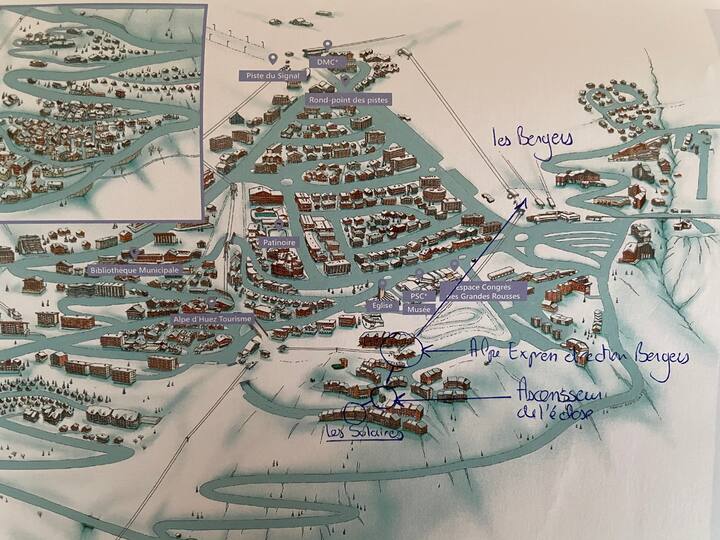 DMC*
Piste du Signal
Rond-point des pistes
les Bergers
Patinoire
Bibliothèque Municipale
Espace Congrès
des Grandes Rousses
PSC*
Eglise
Musée
Alpe d'Huez Tourisme
Alpe Express direction Bergers
Ascensseur
de l'éclose
les Solaires